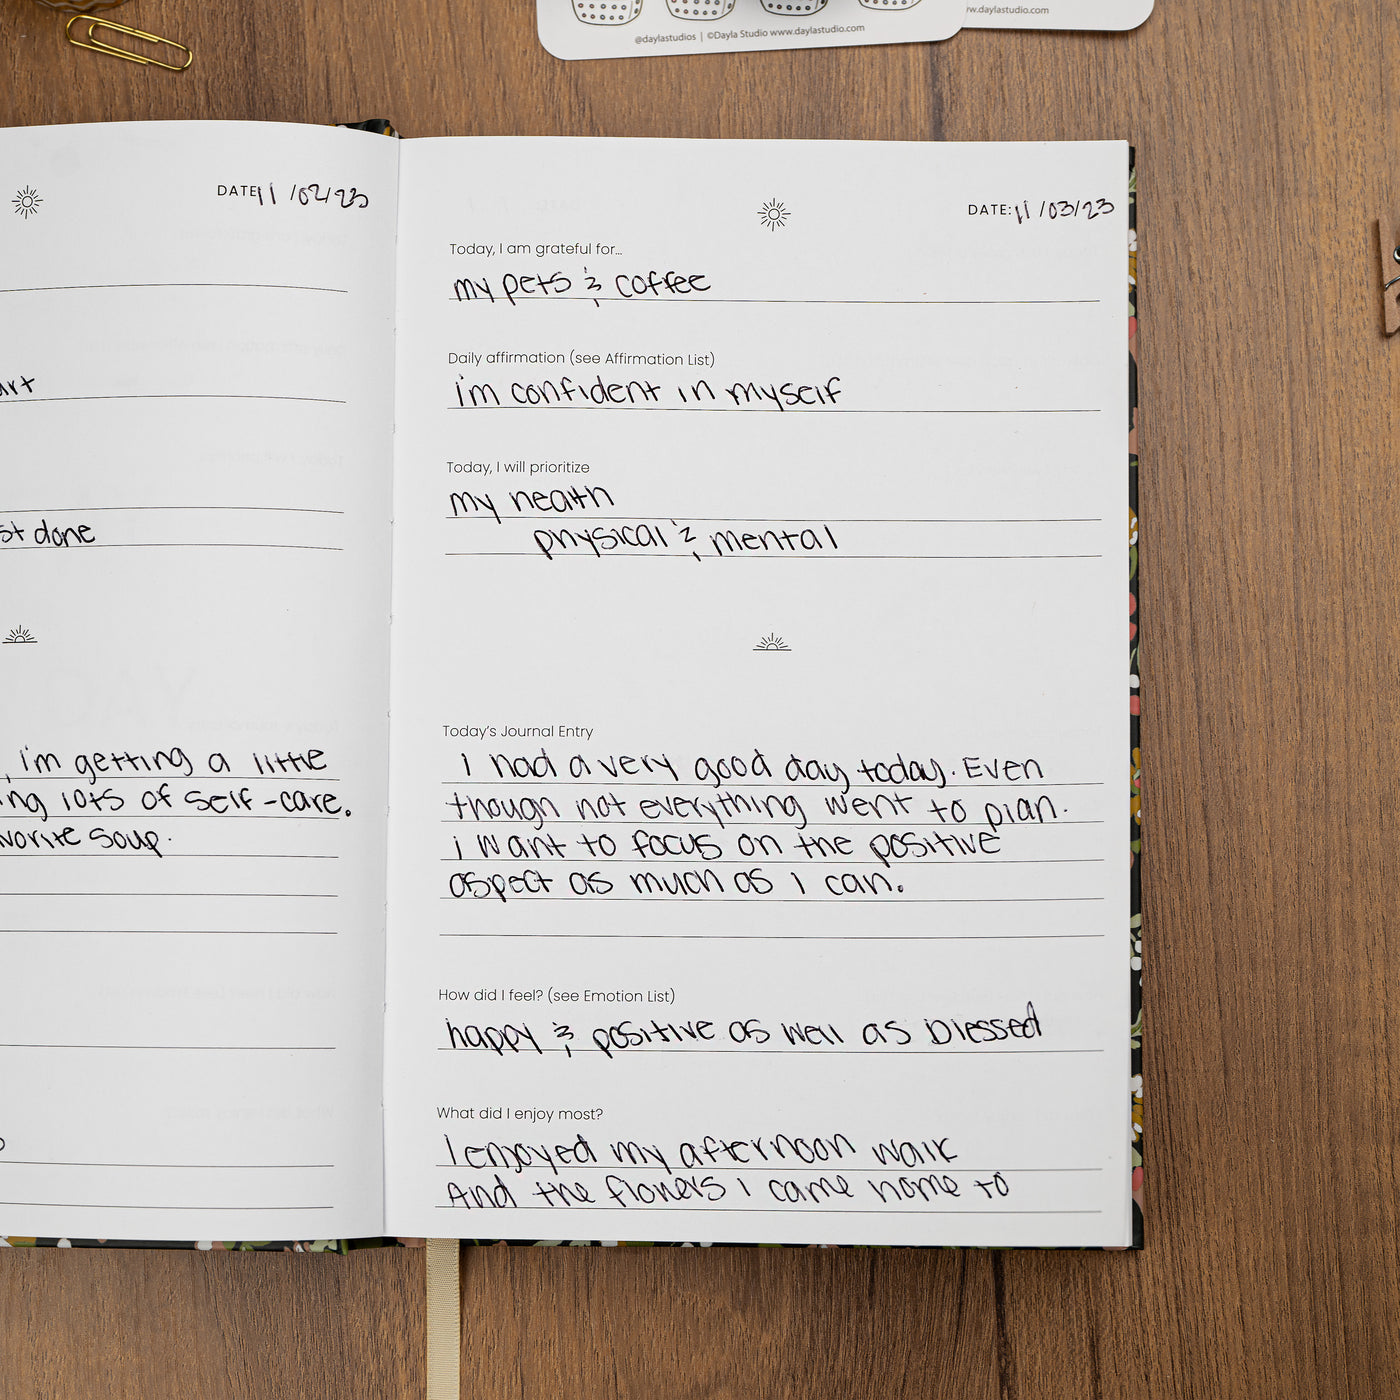 @daylastudios | ©Dayla Studio www.daylastudio.com
w.daylastudio.com
DATE 11/02/23
art
st done
, i'm getting a little
ing lots of self-care.
vorite soup.
DATE: 11/03/23
Today, I am grateful for...
my pets & coffee
Daily affirmation (see Affirmation List)
i'm confident in myself
Today, I will prioritize
my health
physical & mental
Today's Journal Entry
i had a very good day today. Even
though not everything went to plan.
i want to focus on the positive
aspect as much as i can.
How did I feel? (see Emotion List)
happy & positive as well as blessed
What did I enjoy most?
I enjoyed my afternoon walk
And the flowers i came home to